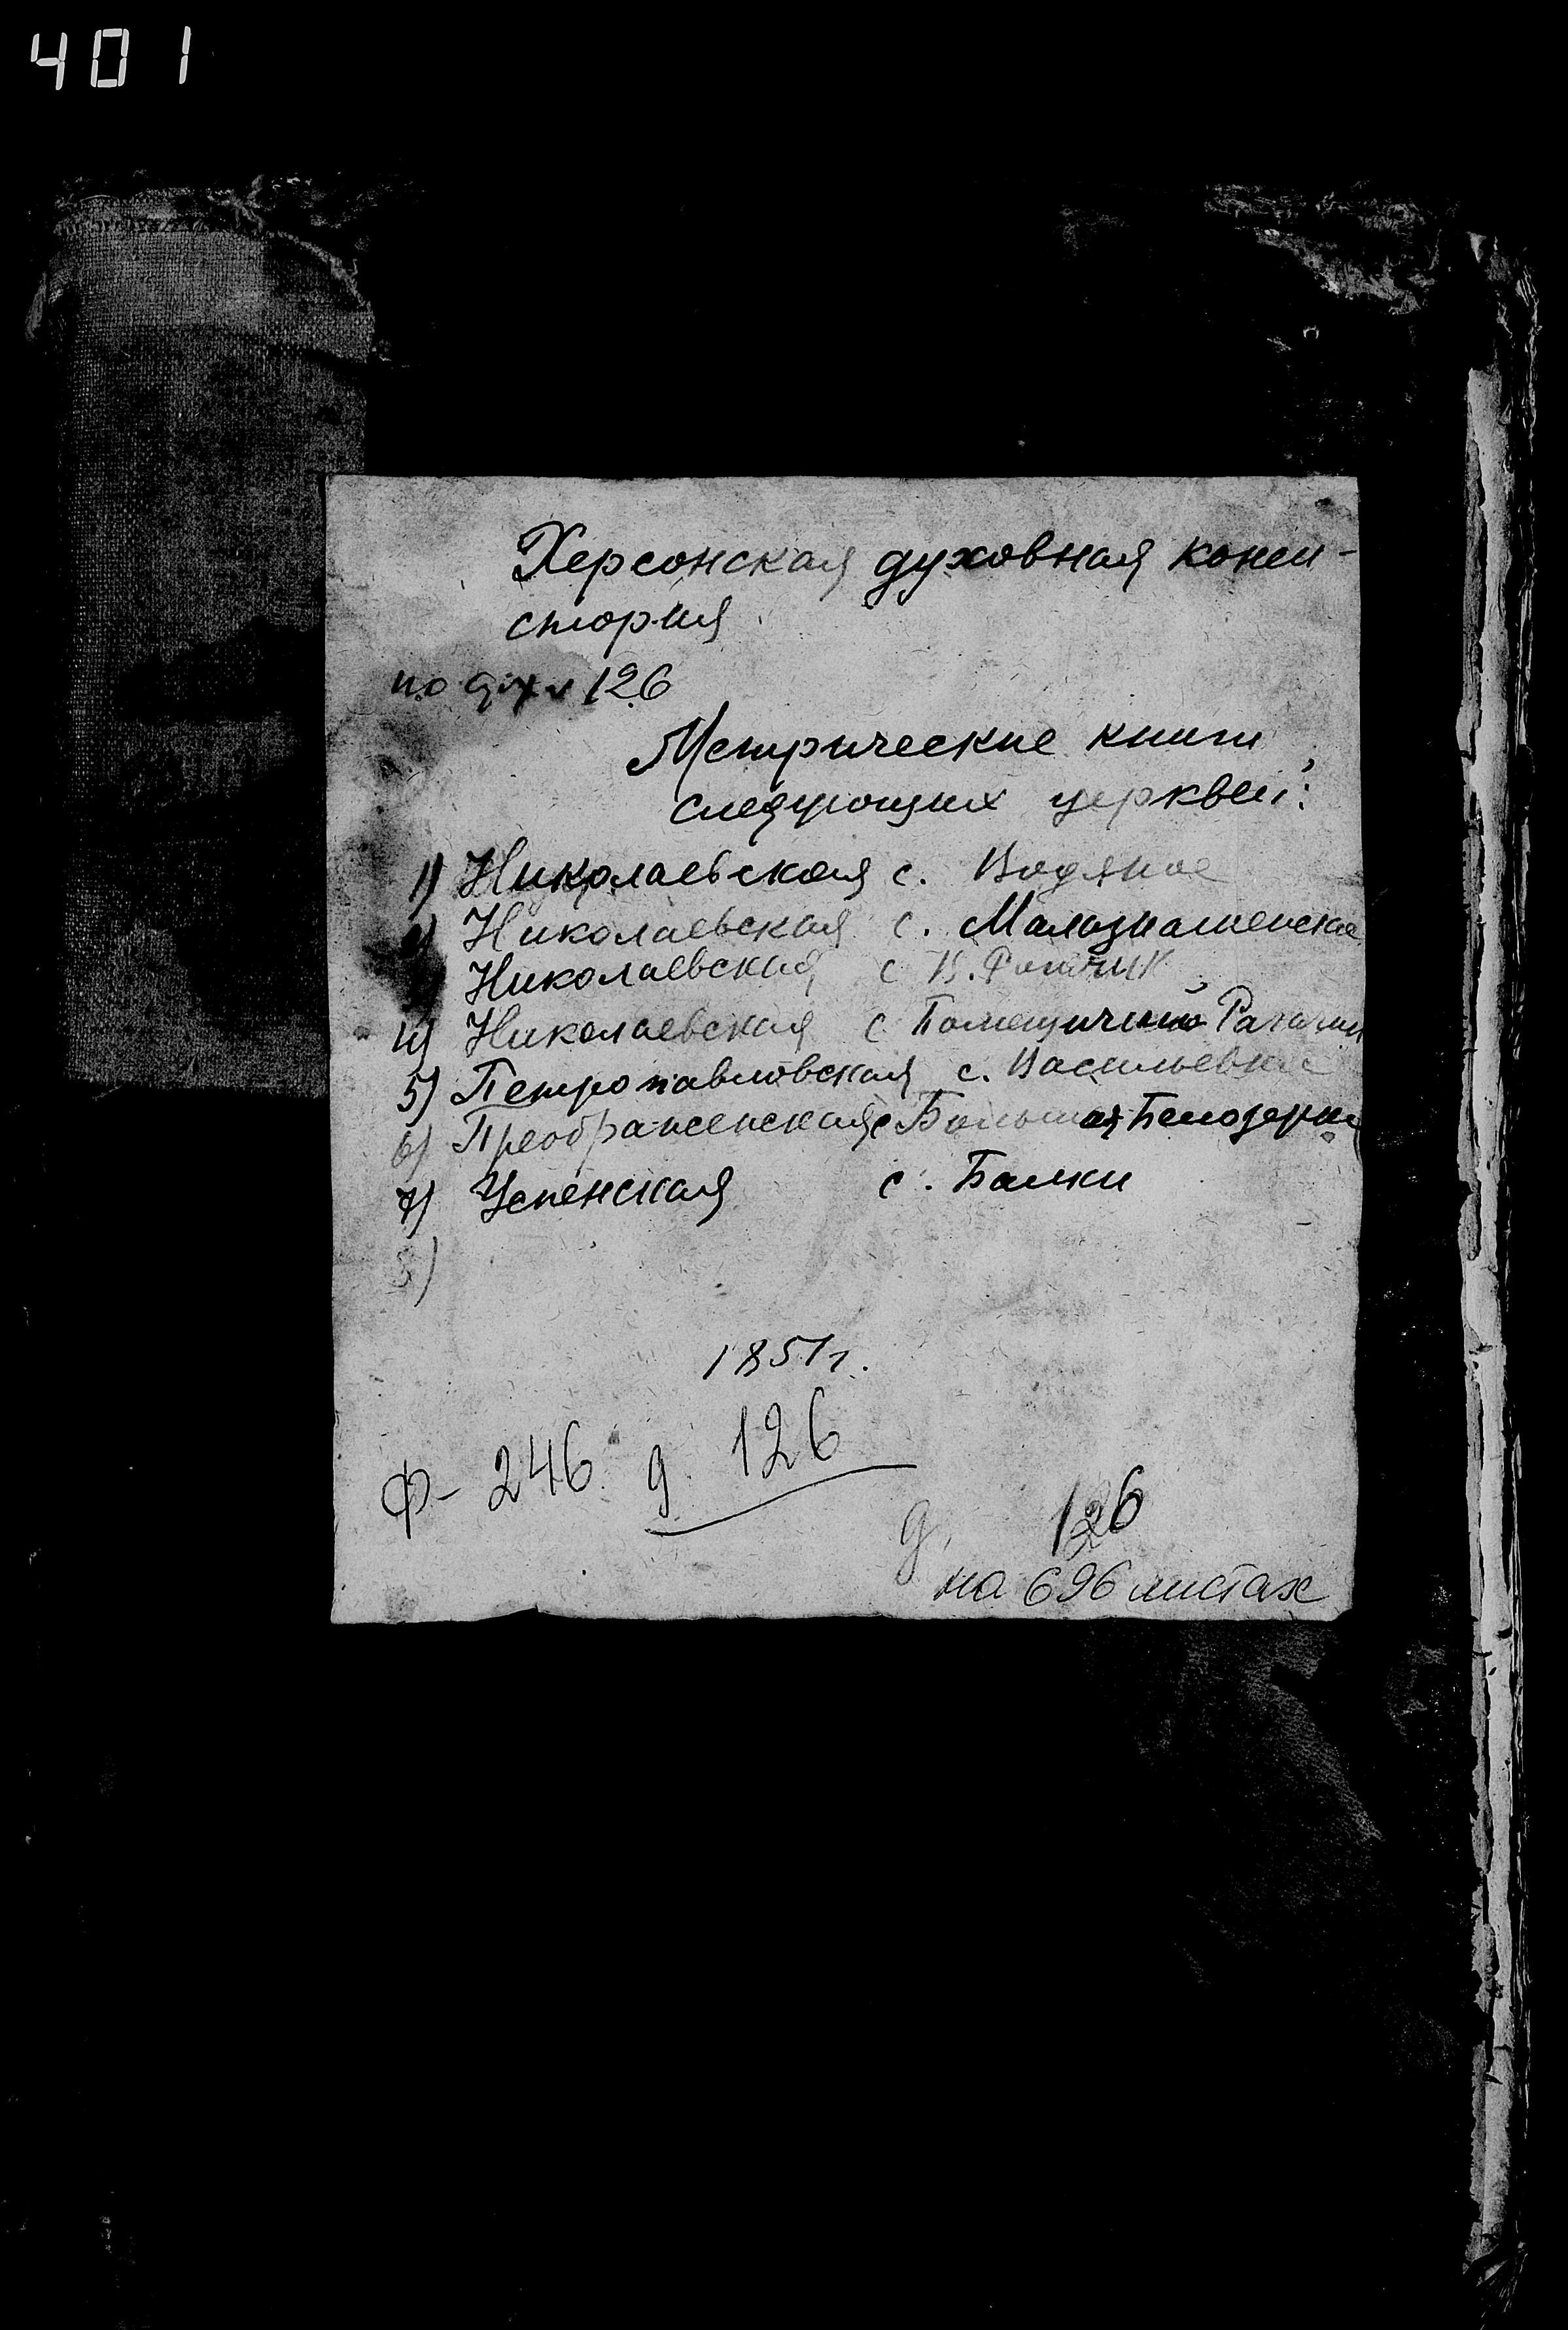 401
Херсонская духовная конси-
стория
по 126
Метрические книги
следующих церквей:
1) Николаевская с. Водяное
2) Николаевская с. Малознаменское
Николаевская с В. Рогачик
4) Николаевская с Рогачик
5) Петропавловская с. Васильевка
6) Преображенская с Большая Белозерка
7) Успенская с. Балки
8)
1851 г.
Ф- 246. д. 126
д. 126
на 696 листах